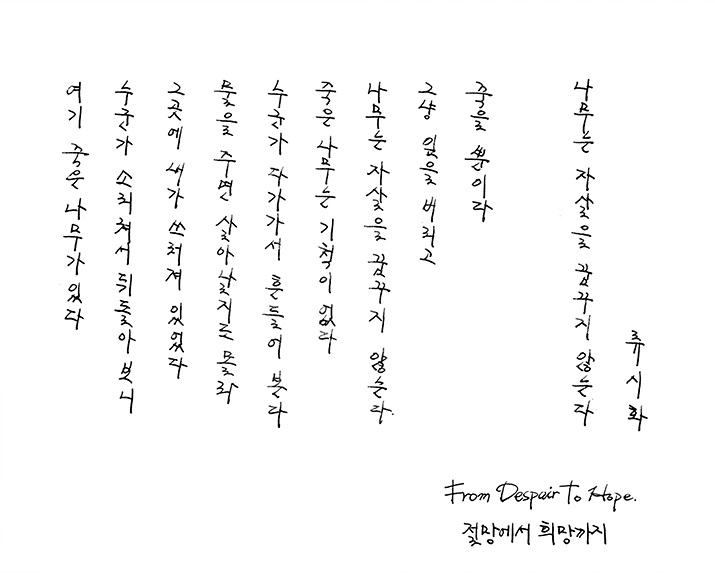 여기 죽은 나무가 있다
누군가 소리쳐서 뒤돌아 보니
그곳에 내가 쓰러져 있었다
물을 주면 살아날지도 몰라
누군가 다가가서 흔들어 본다
죽은 나무는 기척이 없다
나무는 자살을 꿈꾸지 않는다.
그냥 잎을 버리고
죽을 뿐이다
나무는 자살을 꿈꾸지 않는다
류시화
From Despair To Hope.
절망에서 희망까지